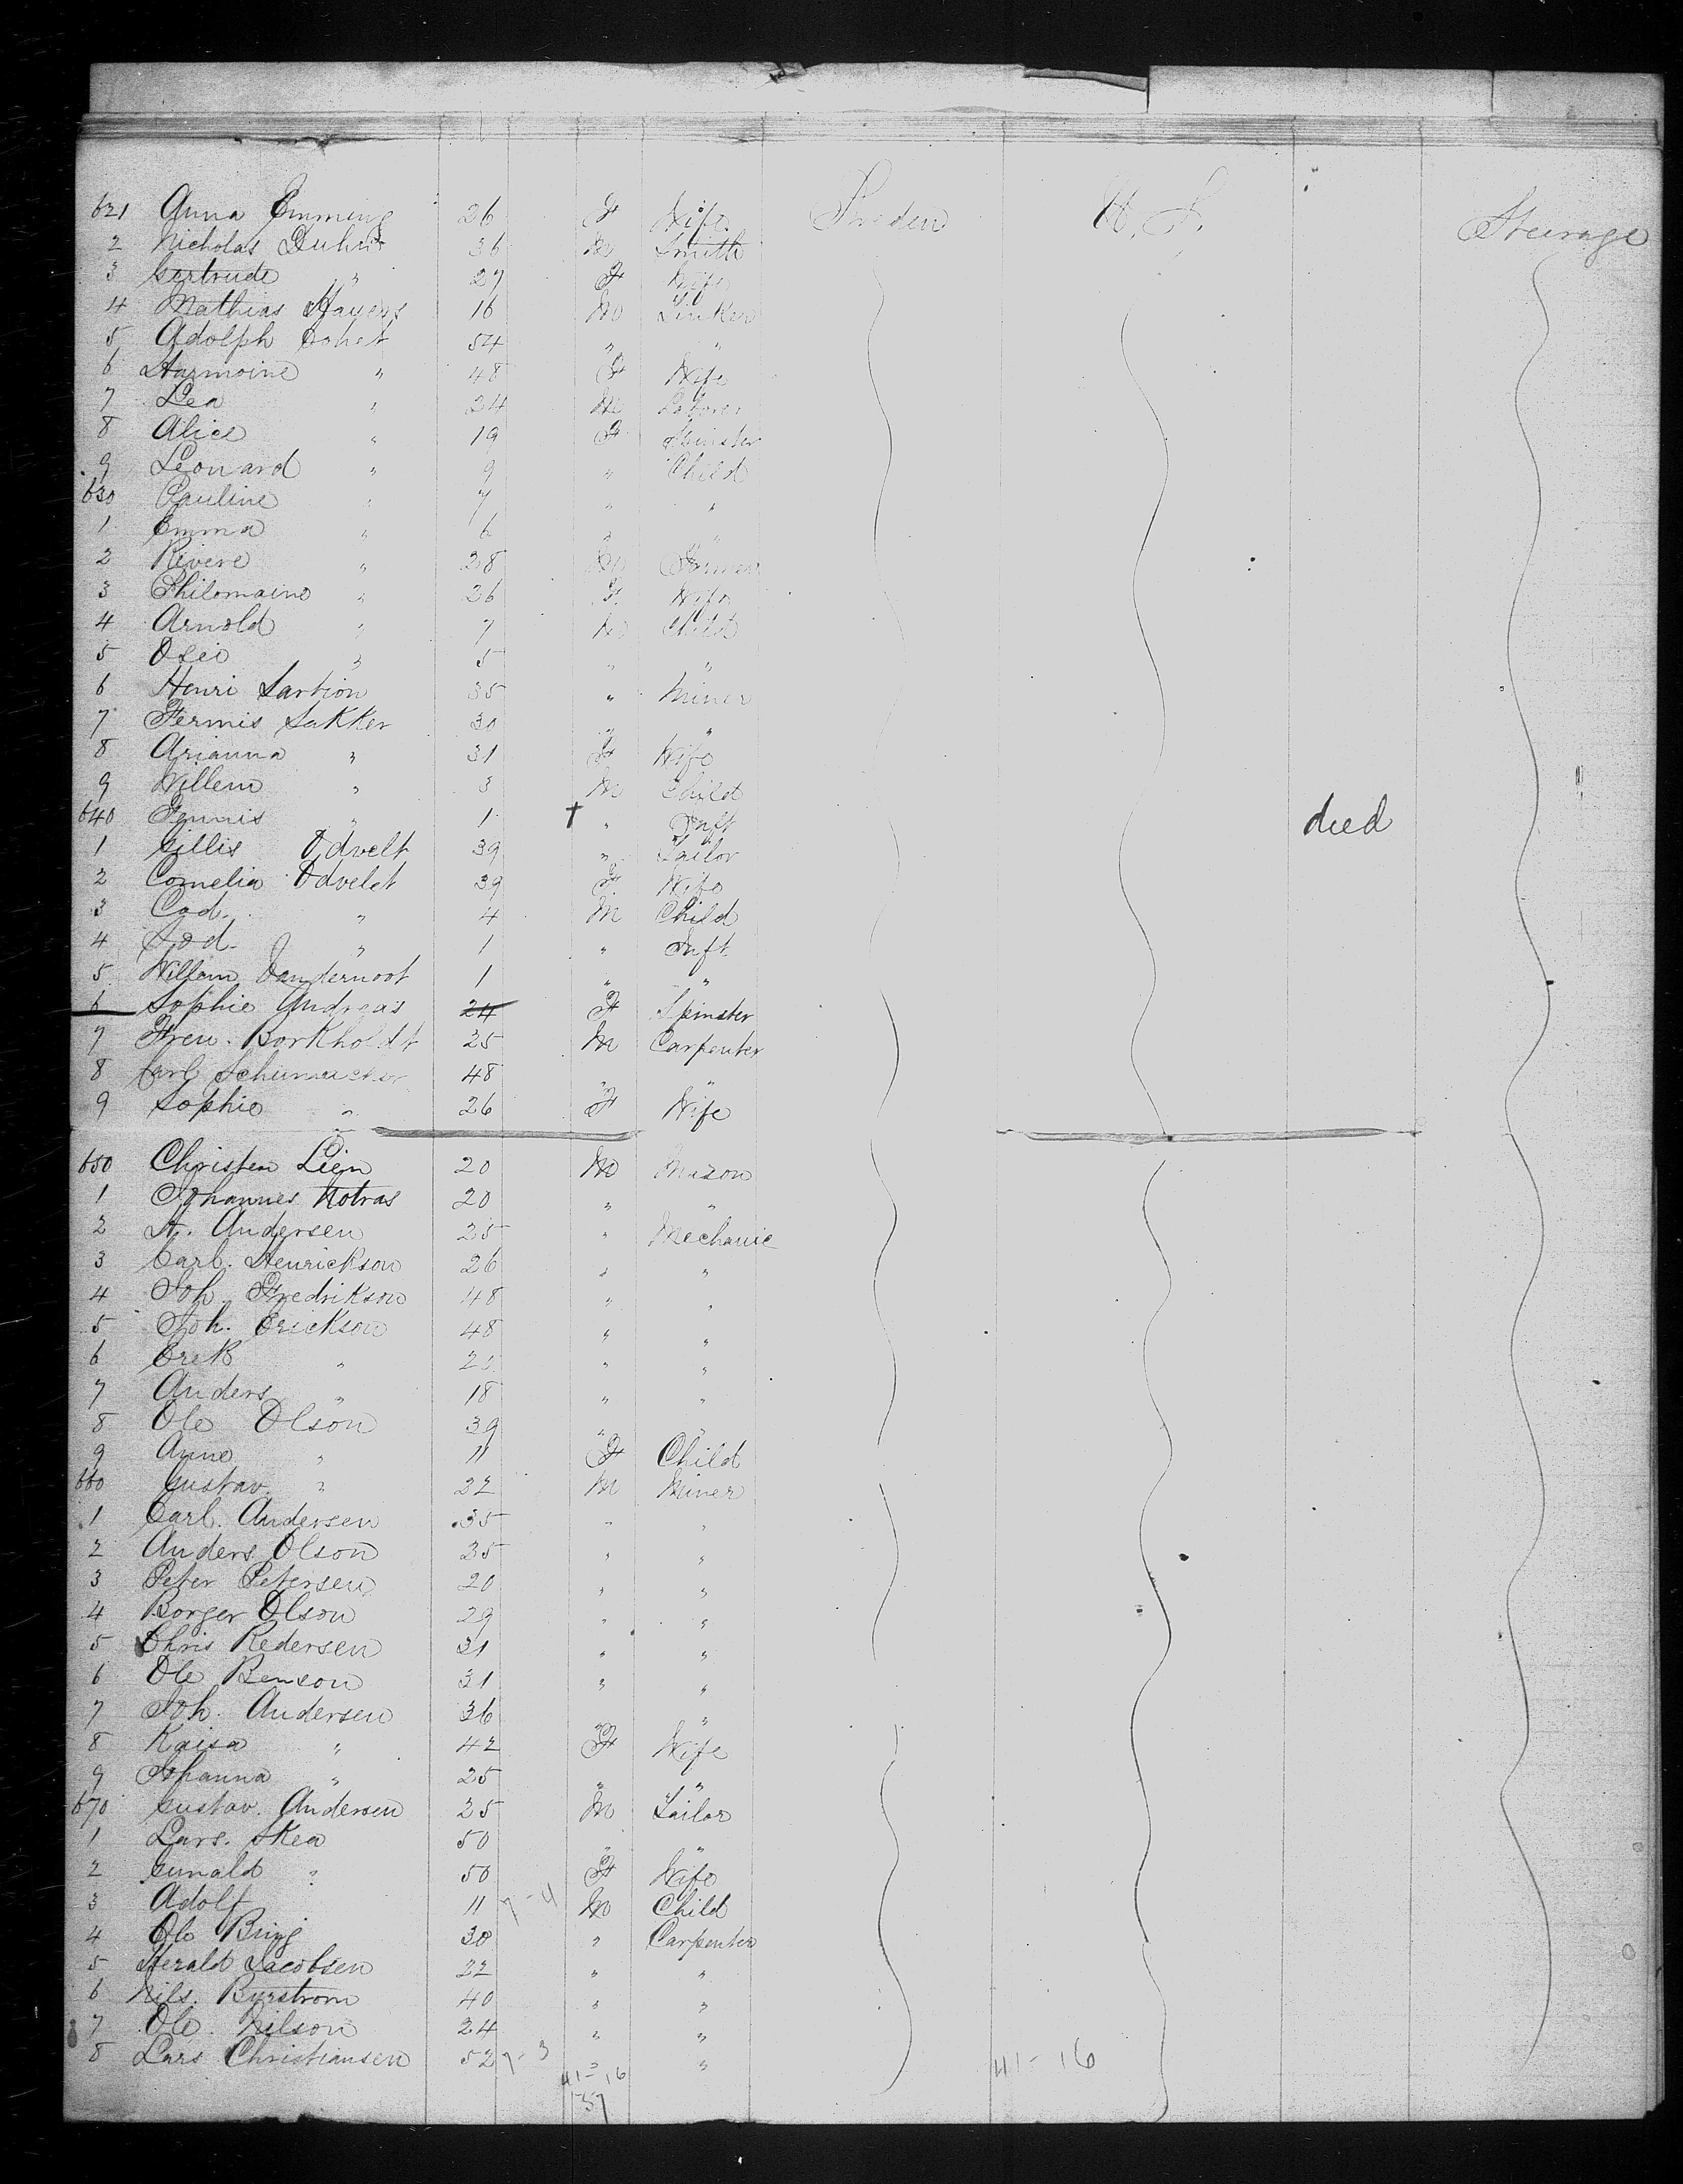 621 Anna Emming 26 F Wife Sweden U.S. Steerage
2 Nicholas Duhr 36 M Smith
3 Gertrude " 27 F Wife
4 Mathias Hayens 16 M Tinker
5 Adolph Cohet 54 " "
6 Harmoine " 48 F Wife
7 Lea " 24 M Laborer
8 Alice " 19 F Spinster
9 Leonard " 9 " Child
630 Pauline " 7 " "
1 Emma " 6 " "
2 Rivere " 28 M Farmer
3 Philomaine " 26 F Wife
4 Arnold " 7 M Child
5 Osei " 5 " "
6 Henri Sartion 35 " Miner
7 Fermis Sakker 30 " "
8 Arianna " 31 F Wife
9 Willem " 3 M Child
640 Fennis " 1 † " Inft died
1 Gillis Odvelt 39 " Tailor
2 Cornelia Odvelet 39 F Wife
3 Cod. " 4 M Child
4 Jod. " 1 " Inft
5 Willem Vandernoot 1 " "
6 Sophie Andreas 24 F Spinster
7 Fren. Borkholdt 25 M Carpenter
8 Carl Schumacher 48 " "
9 Sophie " 26 F Wife
650 Christen Lien 20 M Mason
1 Johannes Notras 20 " "
2 A. Andersen 25 " Mechanic
3 Carl. Henrickson 26 " "
4 Joh. Fredrikson 48 " "
5 Joh. Erickson 48 " "
6 Erek " " "
7 Anders " 18 " "
8 Ole Olson 39 " "
9 Anne " 11 F Child
660 Gustav " 22 M Miner
1 Carl. Andersen 35 " "
2 Anders Olson 25 " "
3 Peter Petersen 20 " "
4 Borger Olson 29 " "
5 Chris Redersen 31 " "
6 Ole Benson 31 " "
7 Joh. Andersen 36 " "
8 Kaisa " 42 F Wife
9 Johanna " 25 " "
670 Gustav. Andersen 25 M Tailor
1 Lars. Skea 50 " "
2 Gunald " 50 F Wife
3 Adolf 11 7-4 M Child
4 Ole Bring 30 " Carpenter
5 Herald Jacobsen 22 " "
6 Nils. Byrstrom 40 " "
7 Ole. Nilson 24 " "
8 Lars Christiansen 52 7-3 " "
41-16 41-16
57